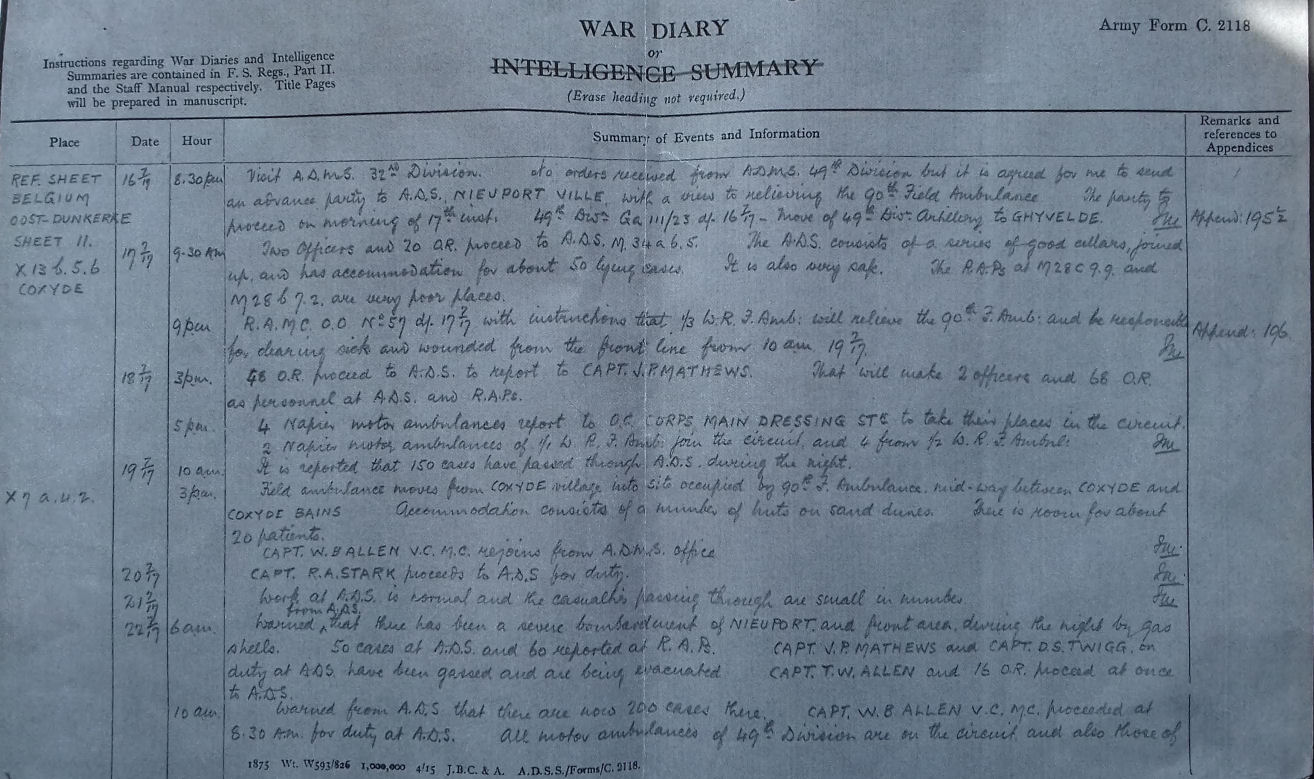 WAR DIARY
or
INTELLIGENCE SUMMARY
(Erase heading not required.)
Army Form C. 2118
Instructions regarding War Diaries and Intelligence
Summaries are contained in F. S. Regs., Part II.
and the Staff Manual respectively. Title Pages
will be prepared in manuscript.
Place Date Hour Summary of Events and Information Remarks and references to Appendices
REF. SHEET 16 7/17 8.30pm Visit A.D.M.S. 32ND Division. No orders received from A.D.M.S. 49th Division but it is agreed for me to send
BELGIUM an advance party to A.D.S. NIEUPORT VILLE, with a view to relieving the 90th Field Ambulance The party to
OOST-DUNKERKE proceed on morning of 17th inst. 49th Divn Ga 111/23 df. 16/7 - Move of 49th Divn Artillery to GHYVELDE. Append: 195
SHEET 11. 17 7/17 9-30 AM Two Officers and 20 O.R. proceed to A.D.S. M 34 a 6.5. The A.D.S. consists of a series of good cellars, joined
X 13 b. 5.6 up, and has accommodation for about 50 lying cases. It is also very safe. The R.A.Ps at M28C 9.9. and
COXYDE M 28 b 7.2. are very poor places.
9pm R.A.M.C. O.O No 57 df. 17 7/17 with instructions that 1/3 W.R.F.Amb: will relieve the 90th F. Amb: and be responsible Append: 196
for clearing sick and wounded from the front line from 10 am 19 7/17.
18 7/17 3pm. 48 O.R. proceed to A.D.S. to report to CAPT. J.P. MATHEWS. That will make 2 officers and 68 O.R.
as personnel at A.D.S. and R.A.Ps.
5 pm. 4 Napier motor ambulances report to O.C. CORPS MAIN DRESSING STN to take their places in the circuit.
2 Napier motor ambulances of 1/1 W.R.F. Amb: join the circuit, and 4 from 1/2 W.R.F. Ambul:
19 7/17 10 am. It is reported that 150 cases have passed through A.D.S. during the night.
X 7 a.4.2. 3pm. Field ambulance moves from COXYDE village into site occupied by 90th F. Ambulance. mid-way between COXYDE and
COXYDE BAINS Accommodation consists of a number of huts on sand dunes. There is room for about
20 patients.
CAPT. W.B ALLEN V.C. M.C. rejoins from A.D.M.S. office
20 7/17 CAPT. R.A. STARK proceeds to A.D.S for duty.
21 7/17 Work at A.D.S. is normal and the casualties passing through are small in number.
22 7/17 6 am. Warned from A.D.S. that there has been a severe bombardment of NIEUPORT and front area, during the night by gas
shells. 50 cases at A.D.S. and 60 reported at R.A.P. CAPT. J.P. MATHEWS and CAPT. D.S. TWIGG, on
duty at ADS have been gassed and are being evacuated CAPT. T.W. ALLEN and 16 O.R. proceed at once
to A.D.S.
10 am Warned from A.D.S that there are now 200 cases there. CAPT. W.B ALLEN V.C. M.C. proceeded at
8.30 A.M. for duty at A.D.S. All motor ambulances of 49th Division are on the circuit and also those of
1875 Wt. W593/826 1,000,000 4/15 J.B.C. & A. A.D.S.S./Forms/C. 2118.